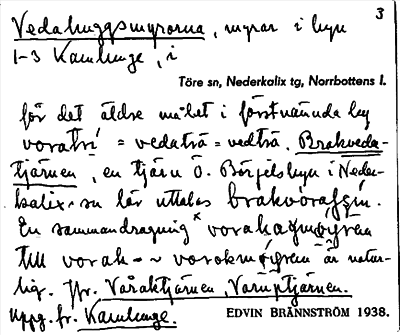 3
Vedahuggsmyrorna, myrar i byn
1-3 Kamlunge, i
Töre sn, Nederkalix tg, Norrbottens l.
för det äldre målet i förstnämnda by
voraträ = vedaträ = vedträ. Brakveda-
tjärnen, en tjärn Ö. Börjelsbyn i Neder-
kalix sn lär uttalas
En sammandragning
till vorak- ~ är natur-
lig. Jfr. Våraktjärnen,
Uppg. fr. Kamlunge.
EDVIN BRÄNNSTRÖM 1938.